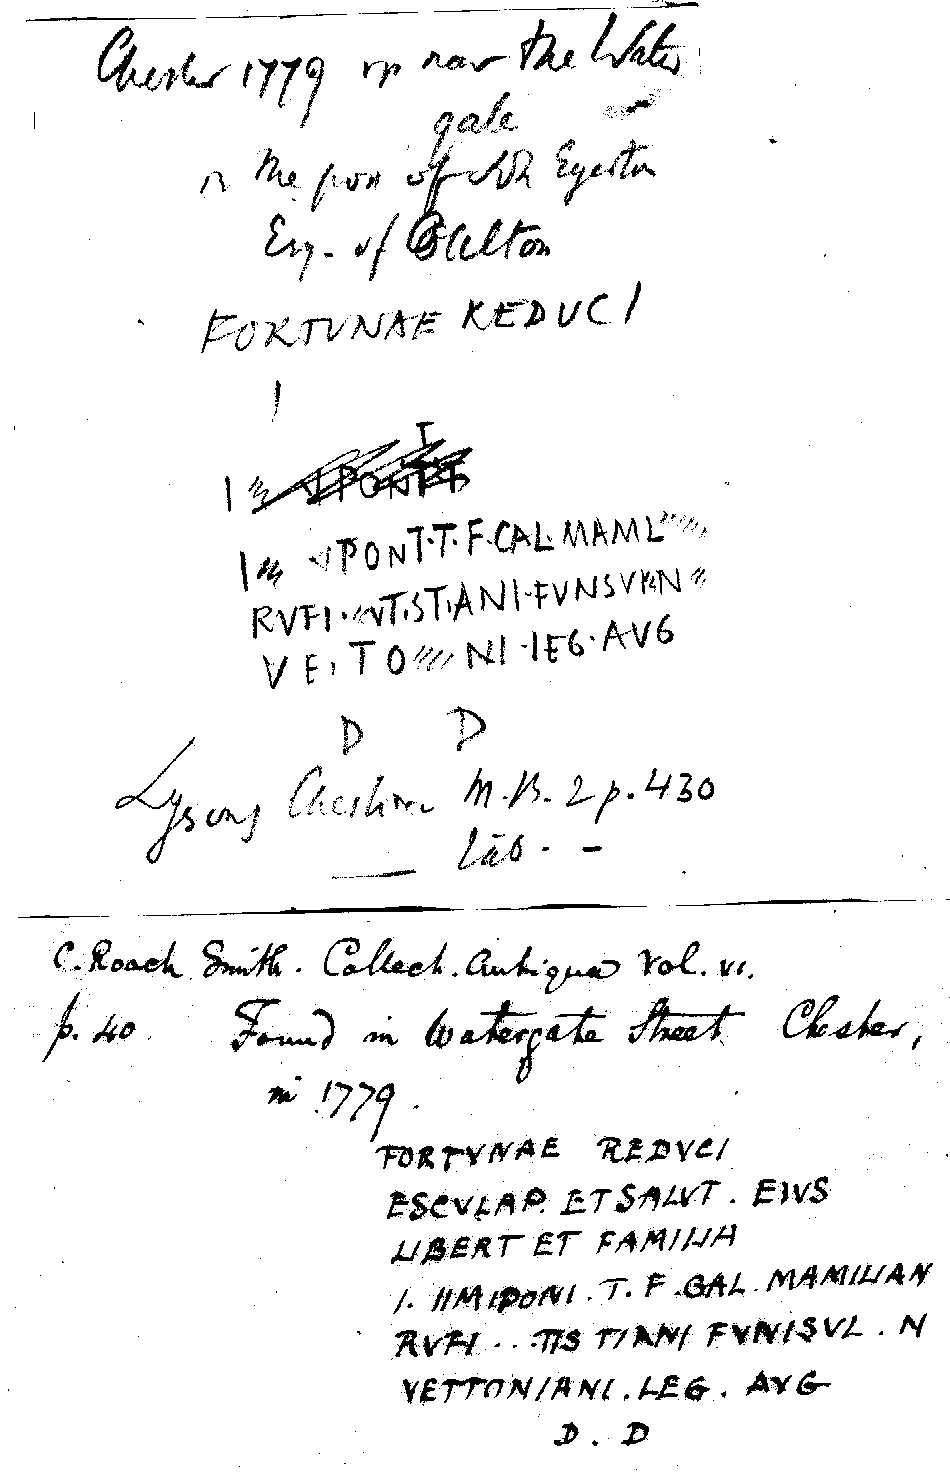 Chester 1779 up near the Water
gate
in the poss of Egerton
Esq. of Oulton
FORTUNAE REDUCI
I
I
I PONT.T.F.CAL.MAML
RVFI. NT.ST.ANI.FVNSVRN
VE, TO NI.IEG.AVG
D D
Lysons Cheshire M.B. 2 p. 430
Lab. -
C. Roach Smith. Collect. Antiqua Vol. VI.
p. 40. Found in Watergate Street Chester,
in 1779.
FORTVNAE REDVCI
ESCVLAP. ET SALVT. EIVS
LIBERT ET FAMILIA
I. IIMIPONI. T. F. GAL. MAMILIAN
RVFI . . TIS TIANI FVNISVL . N
VETTONIANI. LEG. AVG
D. D